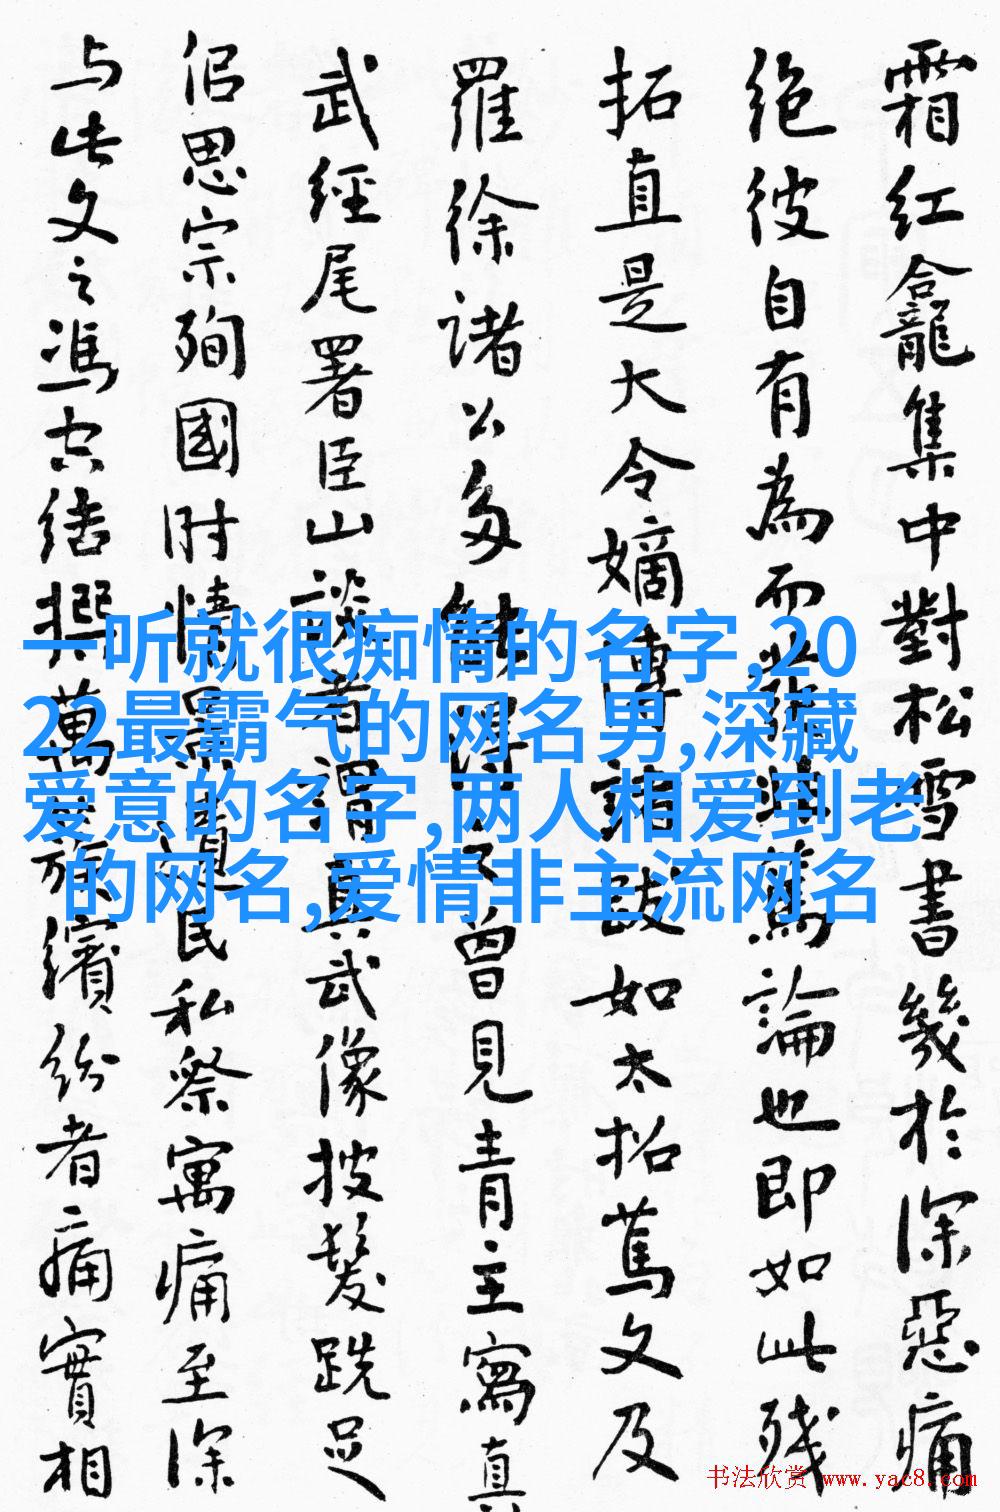 霜红龛集中對松雪書幾於深惡痛
绝彼自有為而篤論也即如此残
拓直是大令嫡傳諸跋如太拓篤文及
羅徐諸公多能得又曾見青主寫真
武經尾署臣山談者謂真武像披髮跣足
侣思宗殉國时情景遺民私察寓痛至深
与此文之馮结撰萬族繽纷者痛實相
一听就很痴情的名字,20
22最霸气的网名男,深藏
爱意的名字,两人相爱到老
的网名,爱情非主流网名
书法欣赏 www.yac8.com